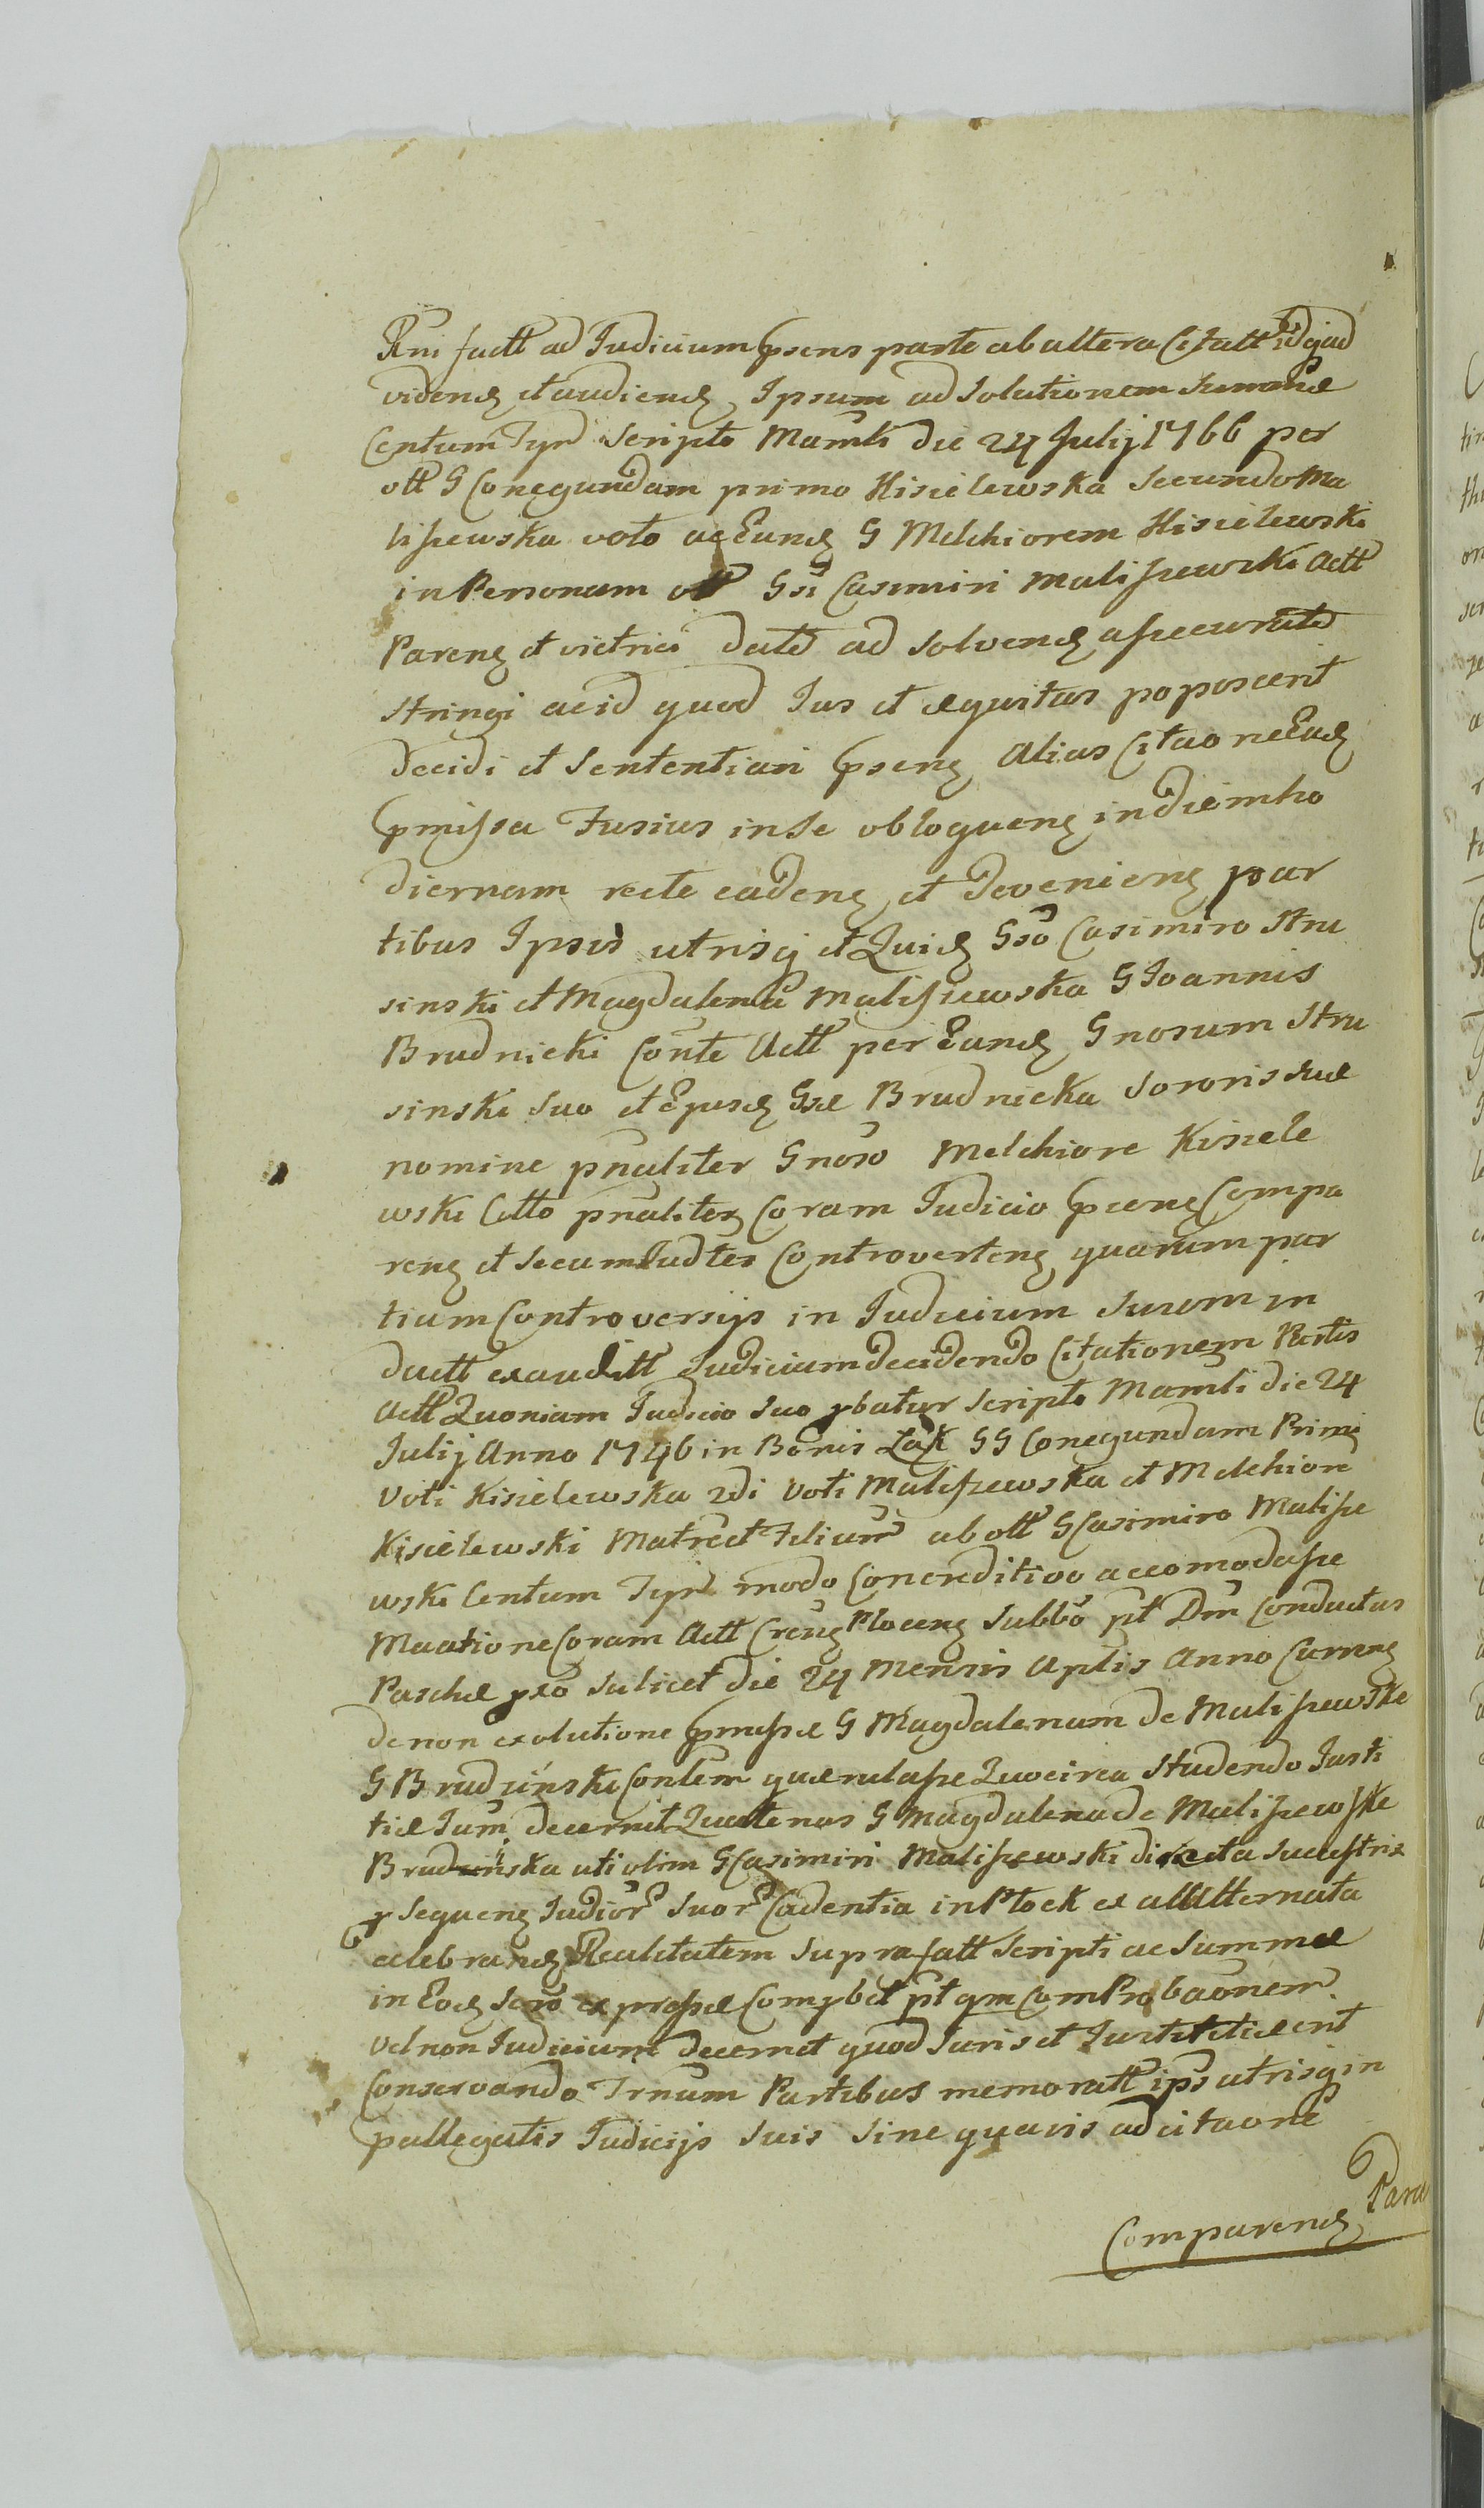 Rni factt ad Judicium psens parte ab altera Citatt idq ad
vidend et audiend Ipsum ad Solutionem Summæ
Centum Tyn Scripto Manli die 24 Julij 1766 per
ott G Conegundam primo Kisielewska Secundo Ma
liszewska voto ac Eund G Melchiorem Kisielewski
in Personam ott Gsi Casimiri Maliszewski Actt
Pareng et vietrici datt ad Solvend assecuratt
stringi ac id quod Jus et æquitas poposcerit
decidi et Sententiari pseng Alias Citaone Ead
pmissa Fusius in Se obloqueng in diem ho
diernam recte cadeng et devenieng par
tibus Ipsis utrisq et Quid Gso Casimiro Stru
sinski et Magdalena Maliszewska G Joannis
Brudnicki Conte Actt per Eund Gnosum Stru
sinski Suo et Ejusd Gsæ Brudnicka Sororis suæ
nomine pnaliter Gnoso Melchiore Kisiele
wski Citto pnaliter Coram Judicio pseng Compa
reng et Secum Judter Controverteng quarum par
tium Controversijs in Judicium Suum in
ductt exauditt Judicium decidendo Citationem Partis
Actt Quoniam Judicio Suo pbatur Scripto Manli die 24
Julij Anno 1746 in Bonis Łąk GG Conegundam Primi
Voti Kisielewska 2di Voti Maliszewska et Melchiore
Kisielewski Matre et Filium ab ott G Casimiro Malisze
wski Centum Tyn modo Concreditivo accomodasse
Maatione Coram Actt Creng Ploceng Subbo pt Dm Conductus
Paschæ pxo Scilicet die 24 Mensis Aplis Anno Curreng
de non exolutione pmissæ G Magdalenam de Maliszewskie
G Brudzinski Contem quærulasse Quocirca Studendo Justi
tiæ Jum decernit Quatenus G Magdalena de Maliszewskie
Brudzinska uti olim G Casimiri Maliszewski directa Successtrix
p Sequeng Judior Suor Cadentia in Płock ex alt Alternata
celebrand Realitatem Supra fatt Scripti ac Summæ
in Eod Scro expressæ Compbet pt qm Comprobaonem
vel non Judicium decernet quod Juris et Justititiæ erit
Conservando Trnum Partibus memoratt ips utrisq in
pallegatis Judicijs Suis Sine quavis adcitaone
Para
Comparend